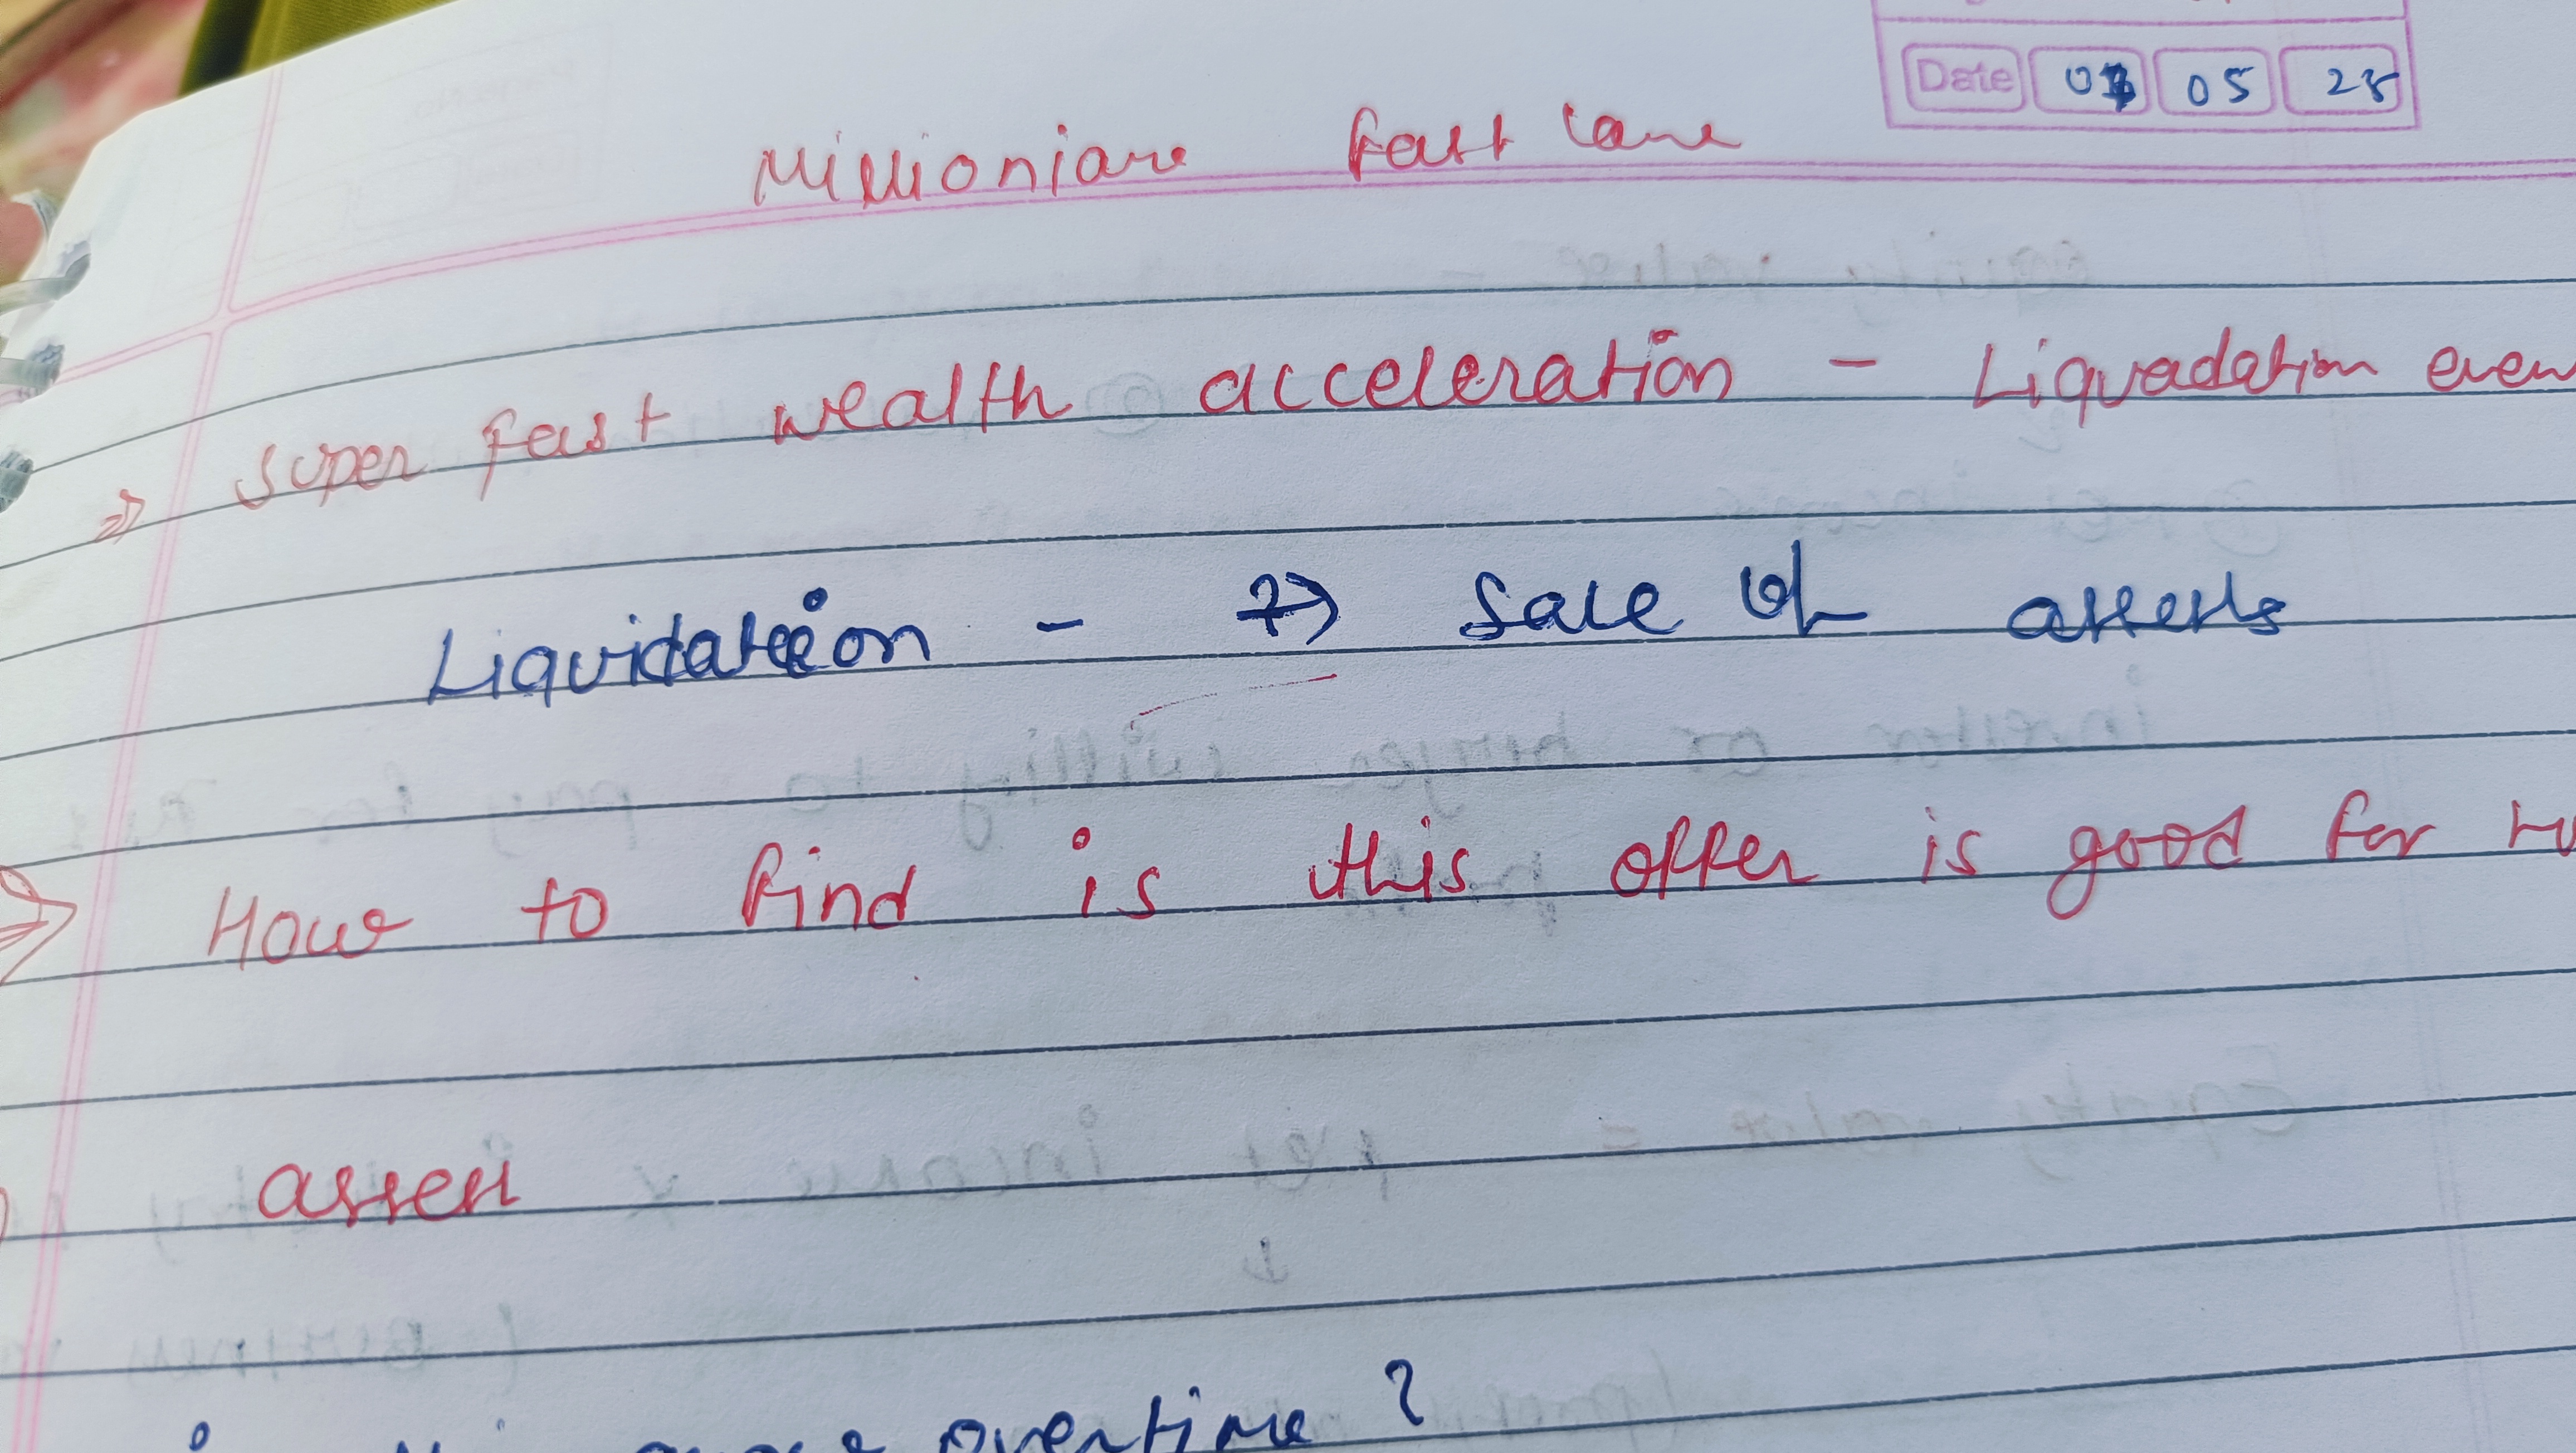 Date 05 25
Millioniare fast lane
⇒ super fast wealth acceleration - Liquadation even
Liquidation - → Sale of assets
⇒ How to find is this offer is good for
asset
overtime ?